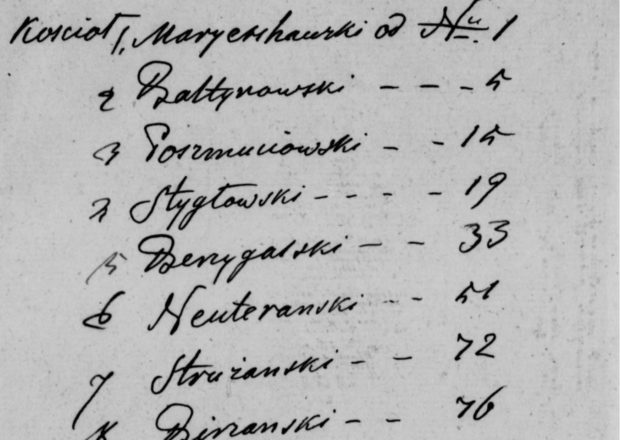 Kościoł 1, Maryenhauzki od Nu 1
2 Bałtynowski - - - 5
3 Poszmuciowski - - 15
4 Stygłowski - - - - 19
5 Berzygalski - - 33
6 Neuteranski - - 51
7 Strużanski - - 72
8 Birzanski - - 76